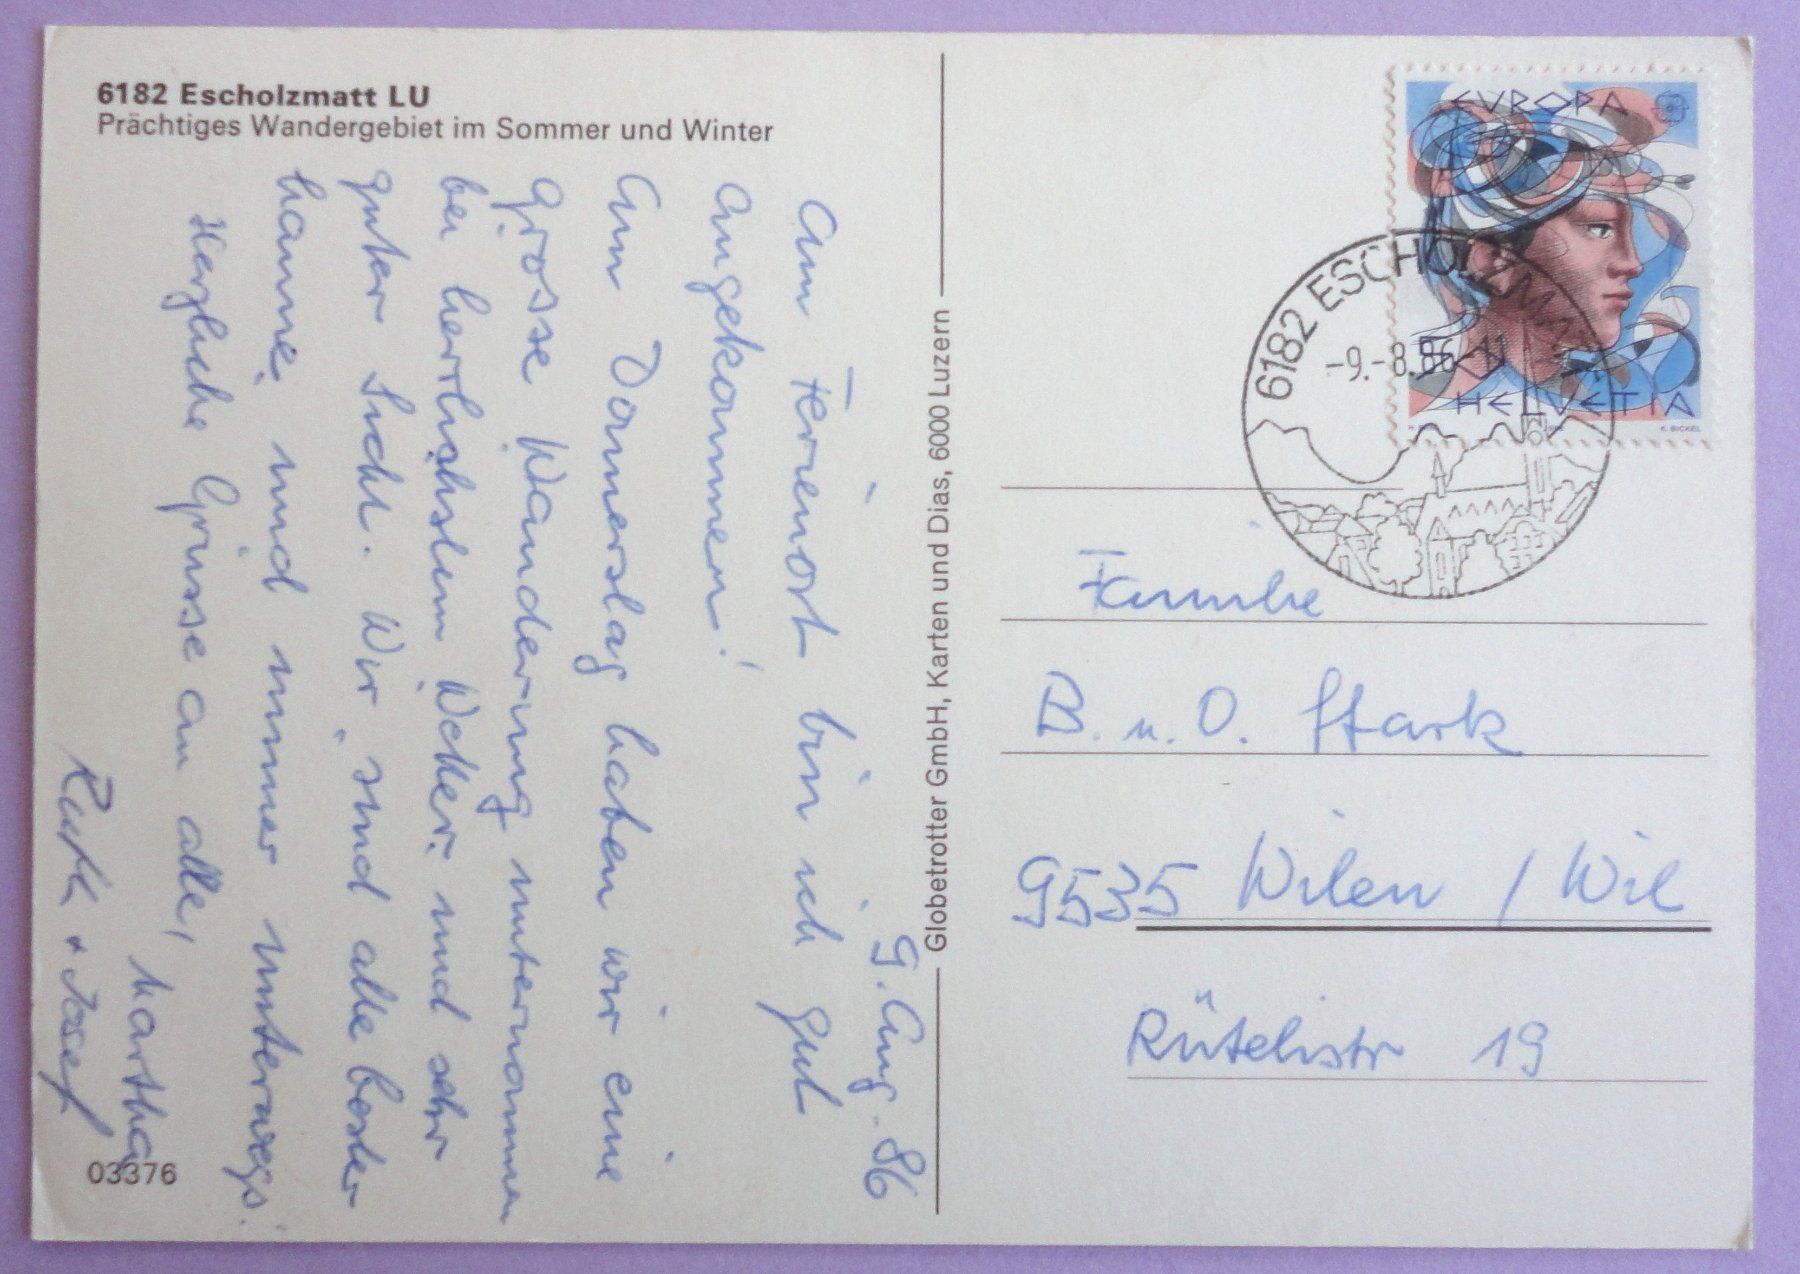 6182 Escholzmatt LU
Prächtiges Wandergebiet im Sommer und Winter
9. Aug. 86
Am Ferienort bin ich gut
angekommen!
Am Donnerstag haben wir eine
grosse Wanderung unternommen
bei herrlichstem Wetter und sehr
guter Sicht. Wir sind alle bester
Laune und immer unterwegs.
Herzliche Grüsse an alle,
Martha
Ruth + Josef
03376
Globetrotter GmbH, Karten und Dias, 6000 Luzern
EVROPA
HELVETIA
K. BICKEL
6182 ESCHOLZMATT
-9.-8.86
Familie
B. u. O. Stark
9535 Wilen / Wil
Rütelistr 19